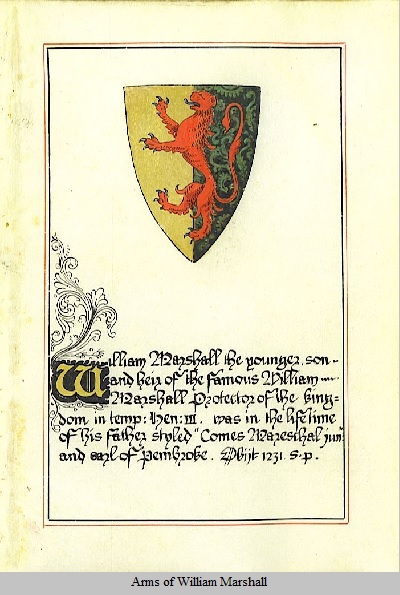 William Marshall the younger, son
and heir of the famous William
Marshall Protector of the King-
dom in temp: Hen: III. was in the lifetime
of his father styled "Comes Mareschal jun:
and earl of Pembroke. Obijt 1231. s.p.
Arms of William Marshall